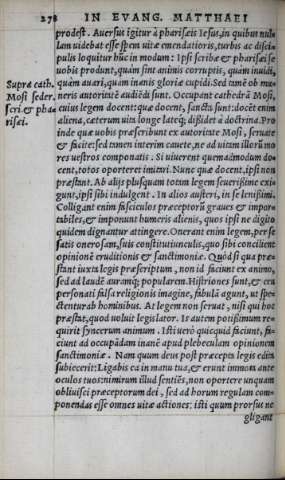 278 IN EVANG. MATTHAEI
prodest. Auersus igitur à pharisæis Iesus, in quibus nul-
lam uidebat esse spem uitæ emendatioris, turbis ac disci-
pulis loquitur hûc in modum: Ipsi scribæ & pharisæi se
uobis produnt, quàm sint animis corruptis, quàm inuidi,
quàm auari, quàm inanis gloriæ cupidi. Sed tamẽ ob mu
neris autoritatẽ audiẽdi sunt. Occupant cathedrã Mosi,
cuius legem docent: quæ docent, sancta sunt: docẽt enim
aliena, cæterum uita longe lateq́; dissidet à doctrina. Pro
inde quæ uobis præscribunt ex autoritate Mosi, seruate
& facite: sed tamen interim cauete, ne ad uitam illorũ mo
res uestros componatis. Si uiuerent quemadmodum do-
cent, totos oporteret imitari. Nunc quæ docent, ipsi non
præstant. Ab alijs plusquam totam legem seuerissime exi-
gunt, ipsi sibi indulgent. In alios austeri, in se lenissimi.
Colligant enim fasciculos præceptorũ graues & impor-
tabiles, & imponunt humeris alienis, quos ipsi ne digito
quidem dignantur attingere. Onerant enim legem, per se
satis onerosam, suis constitutiunculis, quo sibi concilient
opinionẽ eruditionis & sanctimoniæ. Quòd si qua præ-
stant iuxta legis præscriptum, non id faciunt ex animo,
sed ad laudẽ auramq́; popularem. Histriones sunt, & ceu
personati falsa religionis imagine, fabulã agunt, ut spe-
ctentur ab hominibus. At legem non seruat, nisi qui hoc
præstat, quod uoluit legislator. Is autem potissimum re-
quirit syncerum animum. Isti uerò quicquid faciunt, fa-
ciunt ad occupãdam inanẽ apud plebeculam opinionem
sanctimoniæ. Nam quum deus post præcepta legis edita
subiecerit: Ligabis ea in manu tua, & erunt immota ante
oculos tuos: nimirum illud sentiẽs, non oportere unquam
obliuisci præceptorum dei, sed ad horum regulam com-
ponendas esse omnes uitæ actiones: isti quum prorsus ne
gligant
Supra cath.
Mosi seder.
scri. & pha
risæi.